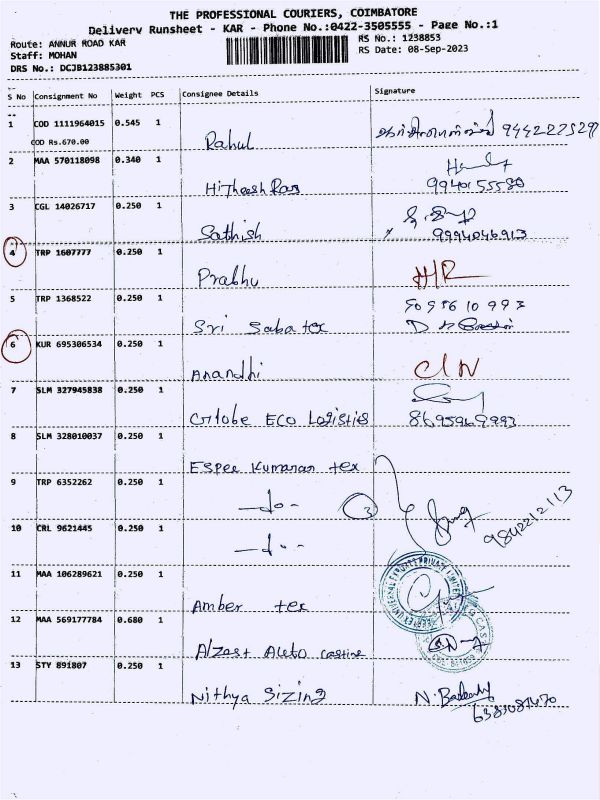 THE PROFESSIONAL COURIERS, COIMBATORE
Delivery Runsheet - KAR - Phone No.:0422-3505555 - Page No.:1
Route: ANNUR ROAD KAR
RS No.: 1238853
Staff: MOHAN
RS Date: 08-Sep-2023
DRS No.: DCJB123885301
S No Consignment No Weight PCS Consignee Details Signature
1 COD 1111964015 0.545 1
COD Rs.670.00 Rahul
2 MAA 570118098 0.340 1
Hitheesh Raj 9940155580
3 CGL 14026717 0.250 1
Sathish 9994046913
4 TRP 1607777 0.250 1
Prabhu H/R
5 TRP 1368522 0.250 1
Sri Saba tex
6 KUR 695306534 0.250 1
Anandhi C/N
7 SLM 327945838 0.250 1
Globe ECO Logistics
8 SLM 328010037 0.250 1
Espee Kumaran tex
9 TRP 6352262 0.250 1
-do- 3 9842212113
10 CRL 9621445 0.250 1
-do-
11 MAA 106289621 0.250 1
Amber tex
12 MAA 569177784 0.680 1
Alzest Auto casting
13 STY 891807 0.250 1
Nithya Sizing